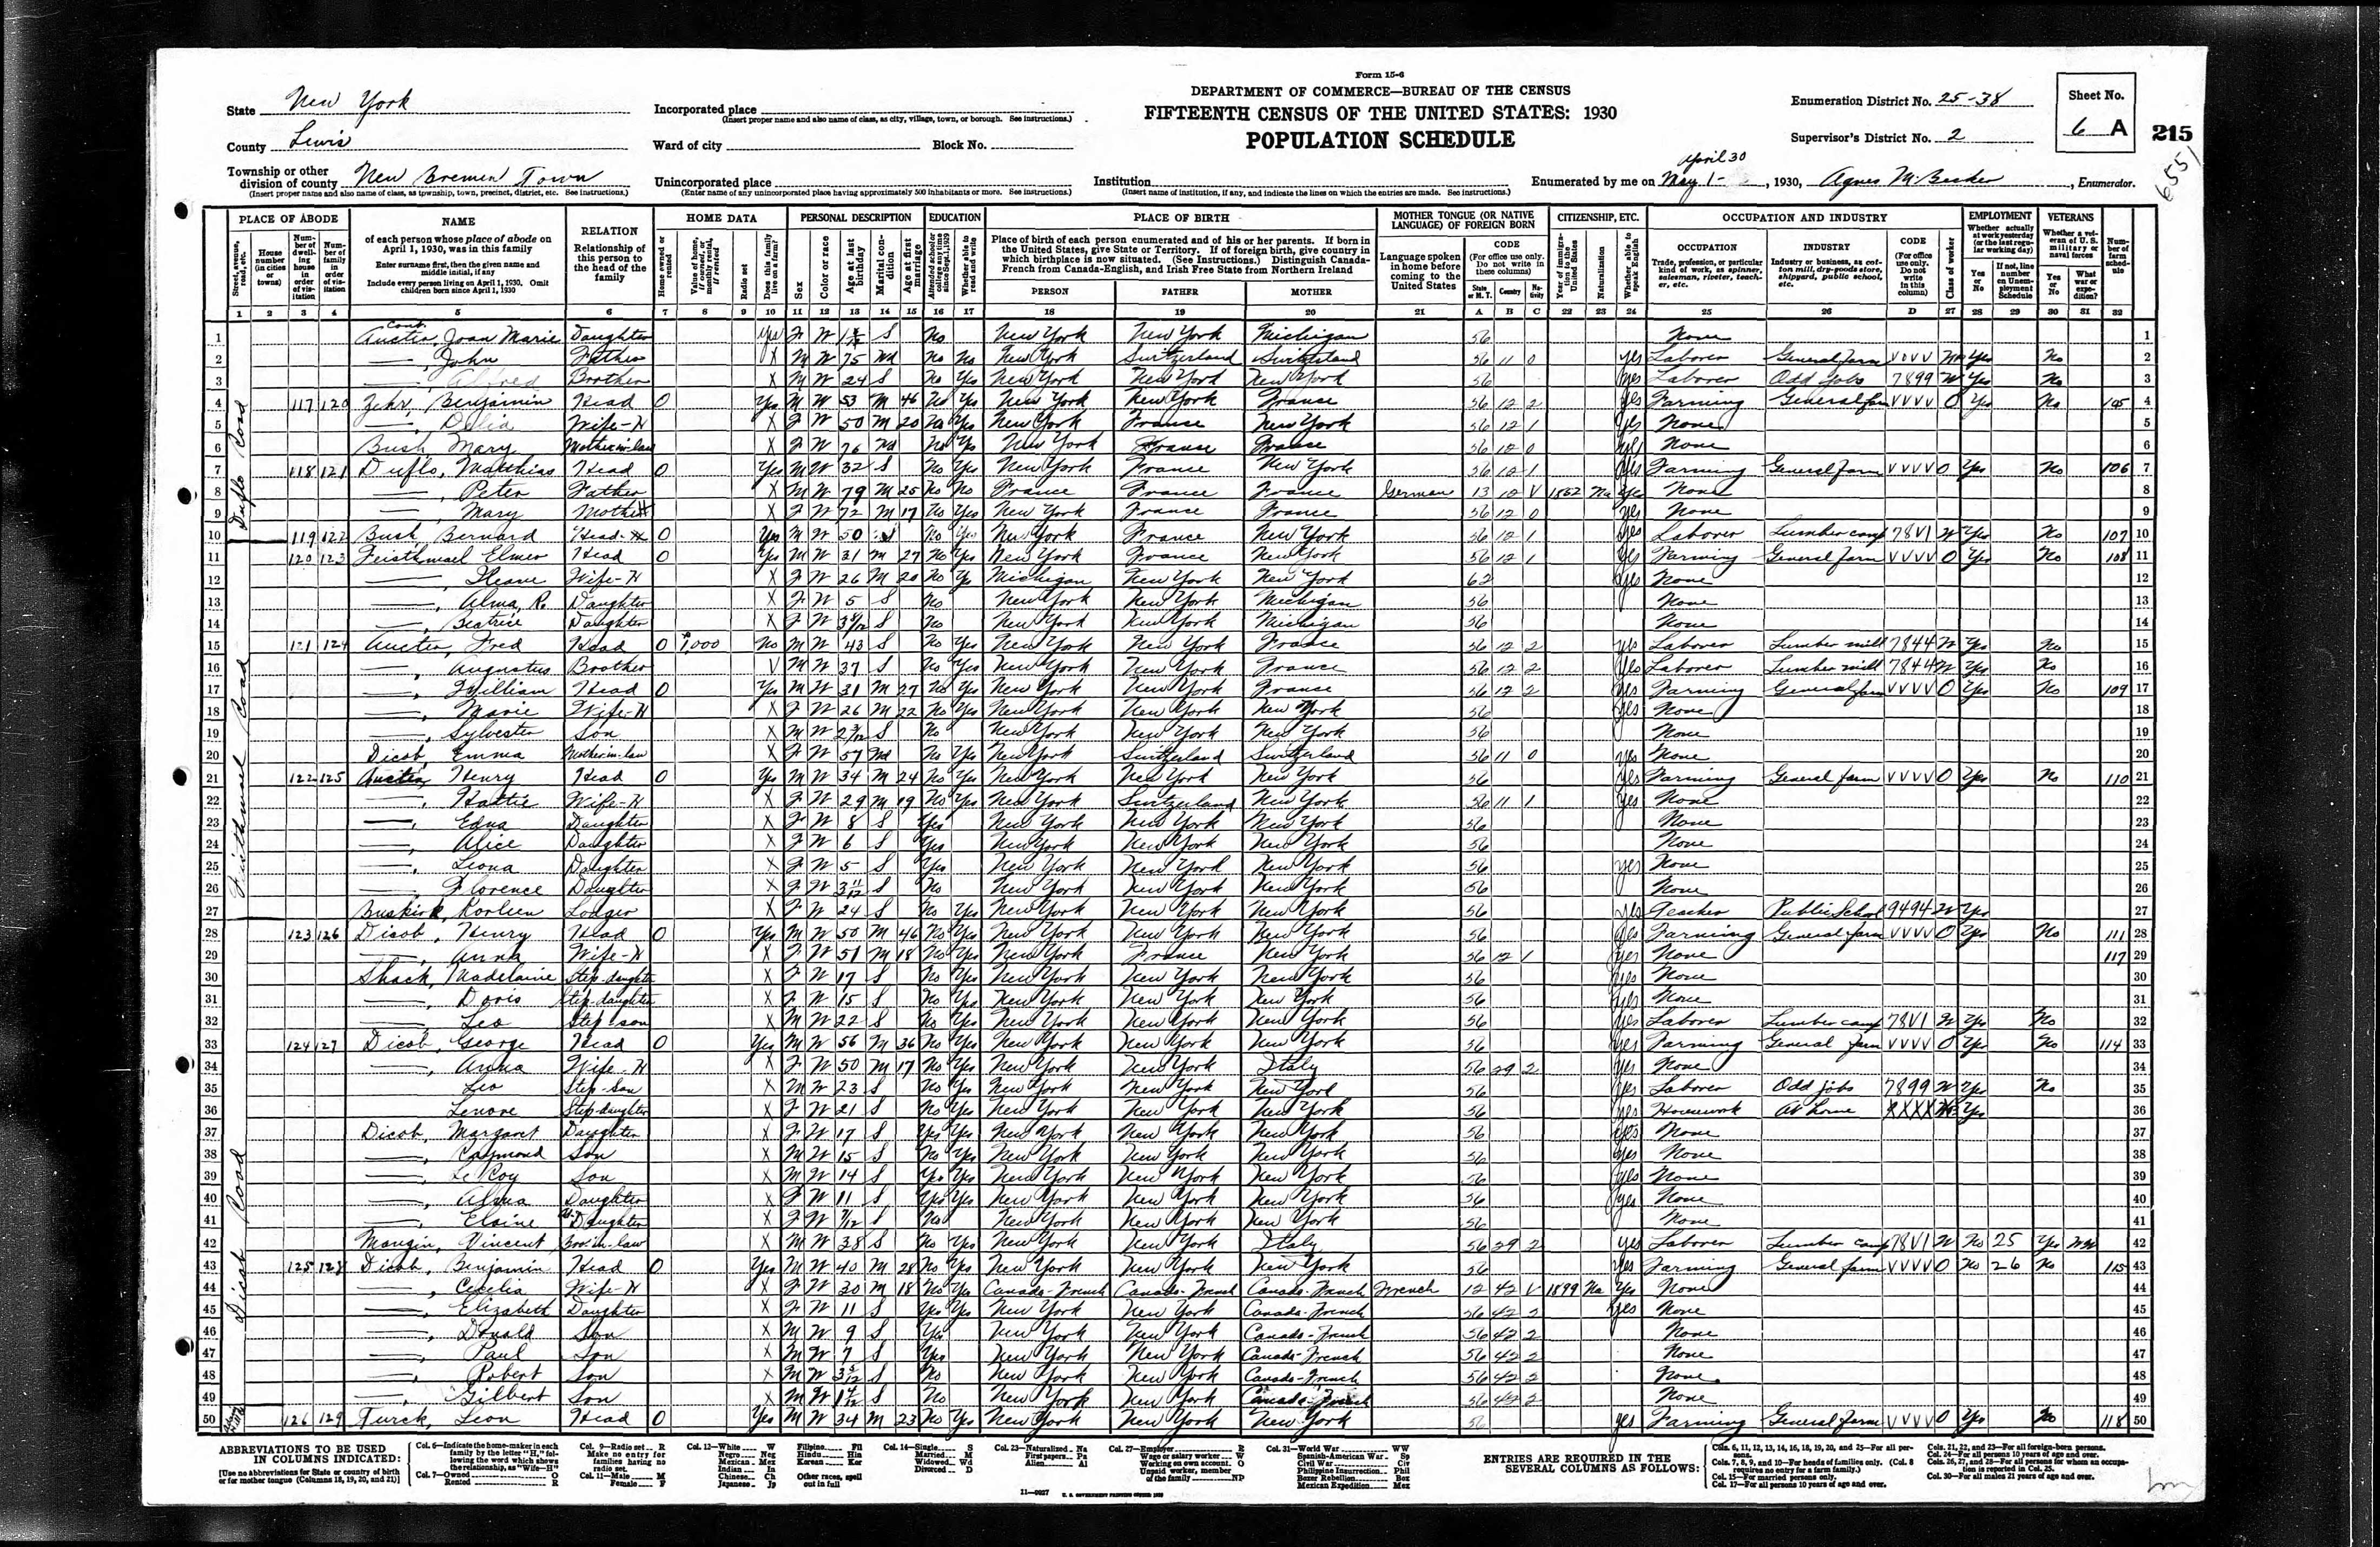 Form 15-6
DEPARTMENT OF COMMERCE—BUREAU OF THE CENSUS
FIFTEENTH CENSUS OF THE UNITED STATES: 1930
POPULATION SCHEDULE
State New York
County Lewis
Township or other division of county New Bremen Town
(Insert proper name and also name of class, as township, town, precinct, district, etc. See instructions.)
Incorporated place
(Insert proper name and also name of class, as city, village, town, or borough. See instructions.)
Ward of city Block No.
Unincorporated place
(Enter name of any unincorporated place having approximately 500 inhabitants or more. See instructions.)
Institution
(Insert name of institution, if any, and indicate the lines on which the entries are made. See instructions.)
Enumeration District No. 25-38
Supervisor's District No. 2
Sheet No. 6 A
215
6551
April 30
Enumerated by me on May 1- , 1930, Agnes M. Becker, Enumerator.
PLACE OF ABODE NAME RELATION HOME DATA PERSONAL DESCRIPTION EDUCATION PLACE OF BIRTH MOTHER TONGUE (OR NATIVE LANGUAGE) OF FOREIGN BORN CITIZENSHIP, ETC. OCCUPATION AND INDUSTRY EMPLOYMENT VETERANS
of each person whose place of abode on April 1, 1930, was in this family
Enter surname first, then the given name and middle initial, if any
Include every person living on April 1, 1930. Omit children born since April 1, 1930
Relationship of this person to the head of the family
Place of birth of each person enumerated and of his or her parents. If born in the United States, give State or Territory. If of foreign birth, give country in which birthplace is now situated. (See Instructions.) Distinguish Canada-French from Canada-English, and Irish Free State from Northern Ireland
PERSON FATHER MOTHER
Language spoken in home before coming to the United States
CODE (For office use only. Do not write in these columns)
OCCUPATION Trade, profession, or particular kind of work, as spinner, salesman, riveter, teacher, etc.
INDUSTRY Industry or business, as cotton mill, dry-goods store, shipyard, public school, etc.
1 2 3 4 5 6 7 8 9 10 11 12 13 14 15 16 17 18 19 20 21 A B C 22 23 24 25 26 D 27 28 29 30 31 32
1 Joan Marie Daughter Yes F W S No New York New York Michigan 56 None 1
2 —, John Father X M W 75 Wd No No New York Switzerland Switzerland 56 11 0 yes Laborer General farm Yes No 2
3 —, Alfred Brother X M W 24 S No Yes New York New York New York 56 yes Laborer Odd jobs 7899 W Yes No 3
4 117 120 Zehr, Benjamin Head O Yes M W 53 M 46 No Yes New York New York France 56 12 2 yes Farming General farm VVVV O Yes No 105 4
5 —, Delia Wife-H X F W 50 M 20 No Yes New York France New York 56 12 1 yes None 5
6 Bush, Mary Mother in law X F W 76 Wd No Yes New York France France 56 12 0 yes None 6
7 118 121 Duflo, Matthias Head O Yes M W 32 S No Yes New York France New York 56 12 1 yes Farming General farm VVVV O Yes No 106 7
8 —, Peter Father X M W 79 M 25 No No France France France German 13 12 V Na yes None 8
9 —, Mary Mother X F W 72 M 17 No Yes New York France France 56 12 0 yes None 9
10 119 122 Bush, Bernard Head O Yes M W 50 S No Yes New York France New York 56 12 1 yes Laborer Lumber camp 78V1 W Yes No 107 10
11 120 123 Feisthmael Elmer Head O Yes M W 31 M 27 No Yes New York France New York 56 12 1 yes Farming General farm VVVV O Yes No 108 11
12 Wife-H X F W 26 M 20 No Yes Michigan New York New York 62 yes None 12
13 —, Alma, R. Daughter X F W 5 S No New York New York Michigan 56 None 13
14 —, Beatrice Daughter X F W S No New York New York Michigan 56 None 14
15 121 124 Fred Head O 1,000 No M W 43 S No Yes New York New York France 56 12 2 yes Laborer Lumber mill 7844 W Yes No 15
16 —, Augustus Brother V M W 37 S No Yes New York New York France 56 12 2 yes Laborer Lumber mill 7844 W Yes No 16
17 —, William Head O Yes M W 31 M 27 No Yes New York New York France 56 12 2 yes Farming General farm VVVV O Yes No 109 17
18 —, Marie Wife-H X F W 26 M 22 No Yes New York New York New York 56 yes None 18
19 —, Sylvester Son X M W 2 3/12 S No New York New York New York 56 None 19
20 Dicob, Emma Mother in-law X F W 57 Wd No Yes New York Switzerland Switzerland 56 11 0 yes None 20
21 122 125 Henry Head O Yes M W 34 M 24 No Yes New York New York New York 56 yes Farming General farm VVVV O Yes No 110 21
22 —, Hattie Wife-H X F W 29 M 19 No Yes New York Switzerland New York 56 11 1 yes None 22
23 —, Edna Daughter X F W 8 S Yes New York New York New York 56 None 23
24 —, Alice Daughter X F W 6 S Yes New York New York New York 56 None 24
25 —, Leona Daughter X F W 5 S Yes New York New York New York 56 yes None 25
26 —, Florence Daughter X F W 3 11/12 S No New York New York New York 56 None 26
27 Buskirk, Lodger X F W 24 S No Yes New York New York New York 56 yes Teacher Public School 9494 W Yes 27
28 123 126 Dicob, Henry Head O Yes M W 50 M 46 No Yes New York New York New York 56 yes Farming General farm VVVV O Yes No 111 28
29 —, Anna Wife-H X F W 51 M 18 No Yes New York France New York 56 12 1 yes None 117 29
30 Shack, Madelaine Step-daughter X F W 17 S No Yes New York New York New York 56 yes None 30
31 —, Doris Step-daughter X F W 15 S No Yes New York New York New York 56 yes None 31
32 —, Leo Step-son X M W 22 S No Yes New York New York New York 56 yes Laborer Lumber camp 78V1 W Yes No 32
33 124 127 Dicob, George Head O Yes M W 56 M 36 No Yes New York New York New York 56 yes Farming General farm VVVV O Yes No 114 33
34 —, Anna Wife-H X F W 50 M 17 No Yes New York New York Italy 56 29 2 yes None 34
35 Leo Step-son X M W 23 S No Yes New York New York New York 56 yes Laborer Odd jobs 7899 W Yes No 35
36 Lenore Step-daughter X F W 21 S No Yes New York New York New York 56 yes Housework At home XXXX Yes 36
37 Dicob, Margaret Daughter X F W 17 S Yes Yes New York New York New York 56 yes None 37
38 —, Raymond Son X M W 15 S No Yes New York New York New York 56 yes None 38
39 —, LeRoy Son X M W 14 S Yes Yes New York New York New York 56 yes None 39
40 —, Alma Daughter X F W 11 S Yes Yes New York New York New York 56 yes None 40
41 —, Elaine Daughter X F W 7/12 S No New York New York New York 56 None 41
42 Mangin, Vincent Bro-in-law X M W 38 S No Yes New York New York Italy 56 29 2 yes Laborer Lumber camp 78V1 W No 25 Yes WW 42
43 125 128 Dicob, Benjamin Head O Yes M W 40 M 28 No Yes New York New York New York 56 yes Farming General farm VVVV O No 26 No 115 43
44 —, Cecilia Wife-H X F W 30 M 18 No Yes Canada-French Canada-French Canada-French French 12 42 V 1899 Na Yes None 44
45 —, Elizabeth Daughter X F W 11 S Yes Yes New York New York Canada-French 56 42 2 yes None 45
46 —, Donald Son X M W 9 S Yes New York New York Canada-French 56 42 2 None 46
47 —, Paul Son X M W 7 S Yes New York New York Canada-French 56 42 2 None 47
48 —, Robert Son X M W S No New York New York Canada-French 56 42 2 None 48
49 —, Gilbert Son X M W S No New York New York Canada-French 56 42 2 None 49
50 126 129 Turck, Leon Head O Yes M W 34 M 23 No Yes New York New York New York 56 yes Farming General farm VVVV O Yes No 118 50
Duflo Road
Feisthmael Road
Dicob Road
ABBREVIATIONS TO BE USED IN COLUMNS INDICATED:
[Use no abbreviations for State or country of birth or for mother tongue (Columns 18, 19, 20, and 21)]
Col. 6—Indicate the home-maker in each family by the letter "H," following the word which shows the relationship, as "Wife—H"
Col. 7—Owned O Rented R
Col. 9—Radio set R Make no entry for families having no radio set.
Col. 11—Male M Female F
Col. 12—White W Negro Neg Mexican Mex Indian In Chinese Ch Japanese Jp Filipino Fil Hindu Hin Korean Kor Other races, spell out in full
Col. 14—Single S Married M Widowed Wd Divorced D
Col. 23—Naturalized Na First papers Pa Alien Al
Col. 27—Employer E Wage or salary worker W Working on own account O Unpaid worker, member of the family NP
Col. 31—World War WW Spanish-American War Sp Civil War Civ Philippine Insurrection Phil Boxer Rebellion Box Mexican Expedition Mex
ENTRIES ARE REQUIRED IN THE SEVERAL COLUMNS AS FOLLOWS:
Cols. 6, 11, 12, 13, 14, 16, 18, 19, 20, and 25—For all persons.
Cols. 7, 8, 9, and 10—For heads of families only. (Col. 8 requires no entry for a farm family.)
Col. 15—For married persons only.
Col. 17—For all persons 10 years of age and over.
Cols. 21, 22, and 23—For all foreign-born persons.
Col. 24—For all persons 10 years of age and over.
Cols. 26, 27, and 28—For all persons for whom an occupation is reported in Col. 25.
Col. 30—For all males 21 years of age and over.
11—9927 U. S. GOVERNMENT PRINTING OFFICE